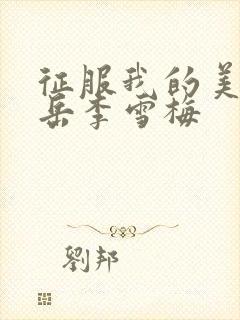 征服我的美
岳李雪梅
劉邦